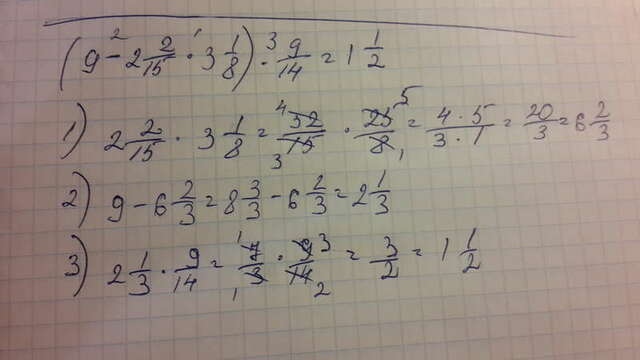 (9 -² 2 2/15 ·¹ 3 1/8) ·³ 9/14 = 1 1/2
1) 2 2/15 · 3 1/8 = ⁴32/15₃ · 25⁵/8₁ = 4·5/3·1 = 20/3 = 6 2/3
2) 9 - 6 2/3 = 8 3/3 - 6 2/3 = 2 1/3
3) 2 1/3 · 9/14 = ¹7/3₁ · 9³/14₂ = 3/2 = 1 1/2